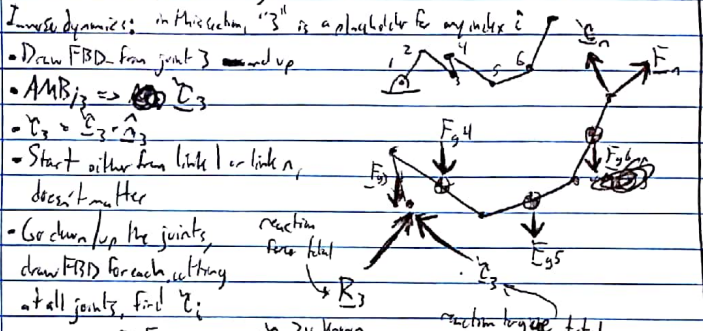 Inverse dynamics: in this section, "3" is a placeholder for any index i
• Draw FBD from joint 3 and up
• AMB/j3 => τ3
• τ3 = τ3 · n̂3
• Start either from link 1 or link n,
doesn't matter
• Go down/up the joints,
draw FBD for each, cutting
at all joints, find τi
1 2 3 4 5 6
τn
Fn
Fg4
Fg3
Fg6
Fg5
reaction
force total
R3
τ3
reaction torque total